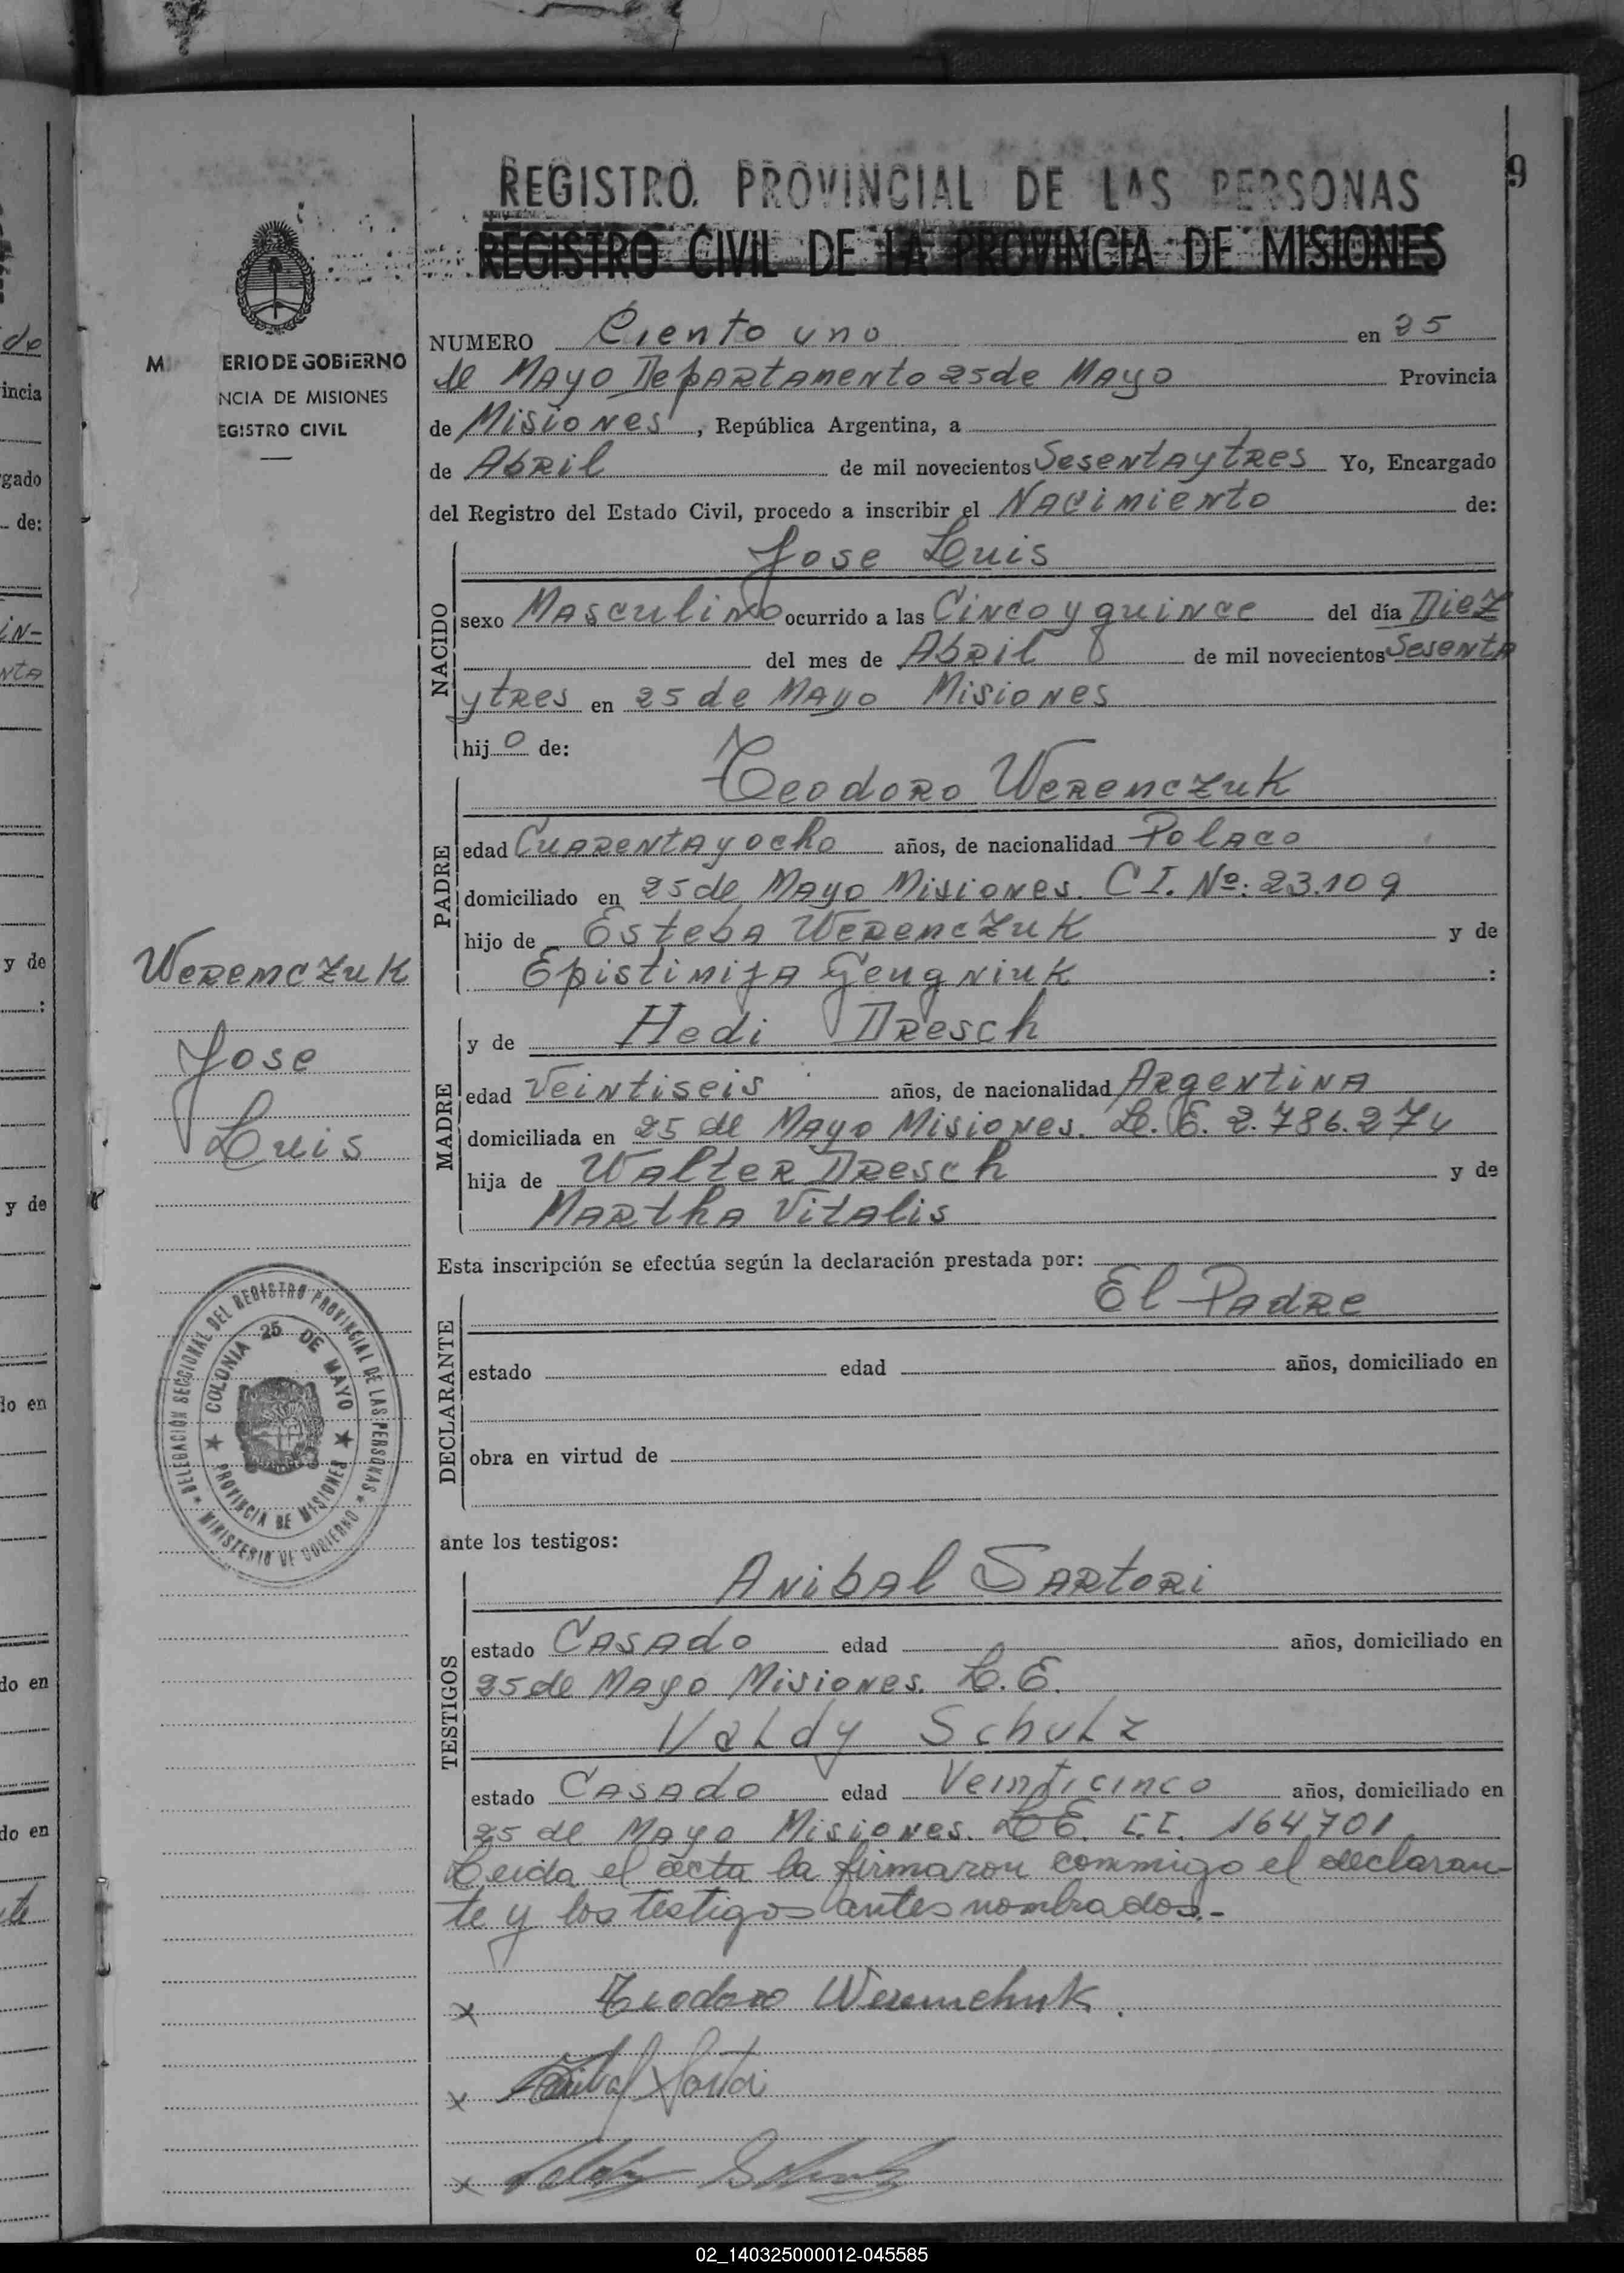 9
REGISTRO PROVINCIAL DE LAS PERSONAS
REGISTRO CIVIL DE LA PROVINCIA DE MISIONES
M ERIO DE GOBIERNO
NCIA DE MISIONES
EGISTRO CIVIL
NUMERO Ciento uno en 25
de Mayo Departamento 25 de Mayo Provincia
de Misiones, República Argentina, a
de Abril de mil novecientos Sesenta y tres Yo, Encargado
del Registro del Estado Civil, procedo a inscribir el Nacimiento de:
NACIDO
Jose Luis
sexo Masculino ocurrido a las Cinco y quince del día Diez
del mes de Abril de mil novecientos Sesenta
y tres en 25 de Mayo Misiones
hij o de:
PADRE
Teodoro Weremczuk
edad Cuarenta y ocho años, de nacionalidad Polaco
domiciliado en 25 de Mayo Misiones. C I. Nº: 23.109
hijo de Esteba Weremczuk y de
Epistimija Geugniuk :
Weremczuk
Jose
Luis
MADRE
y de Hedi Dresch
edad Veintiseis años, de nacionalidad Argentina
domiciliada en 25 de Mayo Misiones. L. E. 2.786.274
hija de Walter Dresch y de
Martha Vitalis
Esta inscripción se efectúa según la declaración prestada por:
DECLARANTE
El Padre
estado edad años, domiciliado en
obra en virtud de
DELEGACIÓN SECCIONAL DEL REGISTRO PROVINCIAL DE LAS PERSONAS
MINISTERIO DE GOBIERNO
COLONIA 25 DE MAYO
PROVINCIA DE MISIONES
ante los testigos:
TESTIGOS
Anibal Sartori
estado Casado edad años, domiciliado en
25 de Mayo Misiones. L. E.
Valdy Schulz
estado Casado edad Veinticinco años, domiciliado en
25 de Mayo Misiones. L E. C.I. 164701
Leida el acta la firmaron commigo el declaran-
te y los testigos antes nombrados.-
x Teodoro Weremchuk.
x Anibal Sartori
x Valdy Schulz
02_140325000012-045585